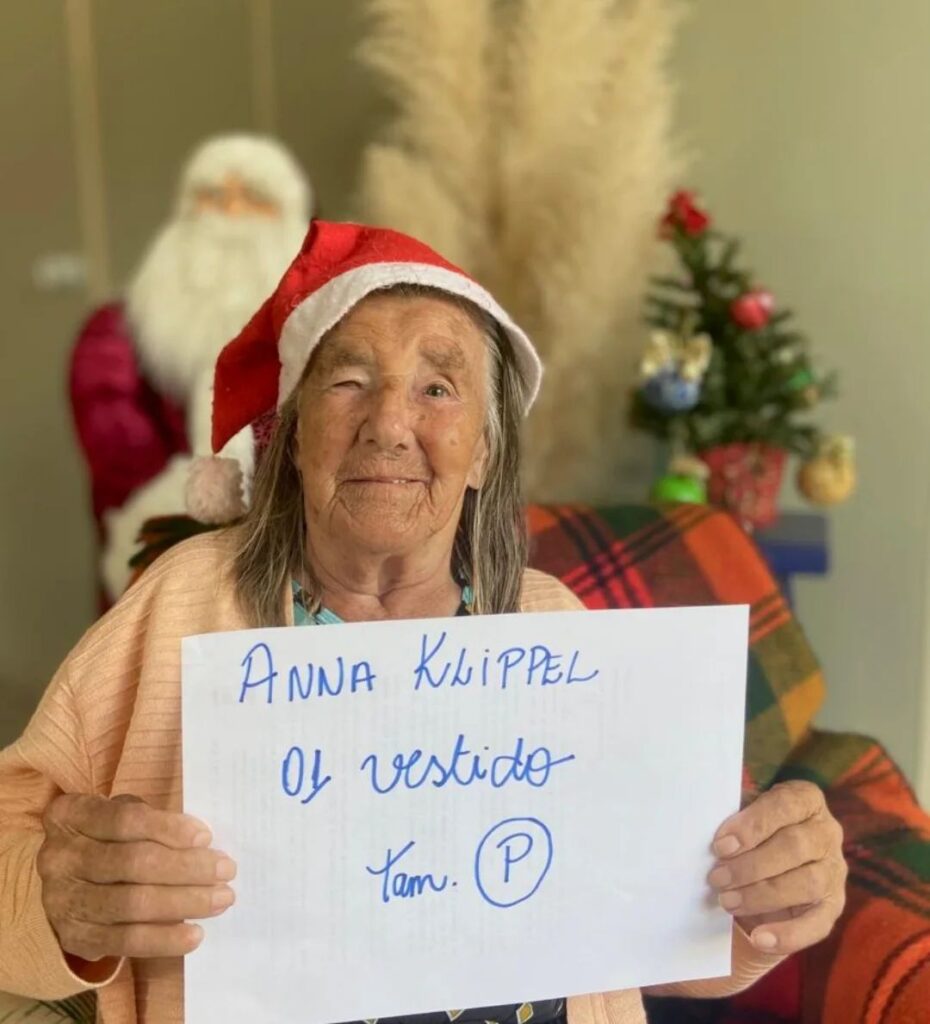 ANNA KLIPPEL
01 vestido
tam. P